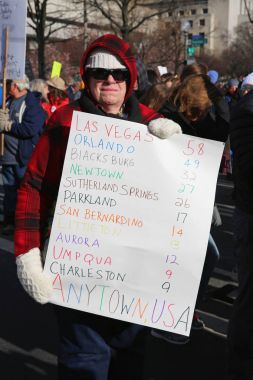 LAS VEGAS 58
ORLANDO 49
BlACKSBURG 32
NEWTOWN 27
SUTHERLAND SPRINGS 26
PARKLAND 17
SAN BERNARDINO 14
LITTLETON 13
AURORA 12
UMPQUA 9
CHARLESTON 9
ANYTOWN, USA